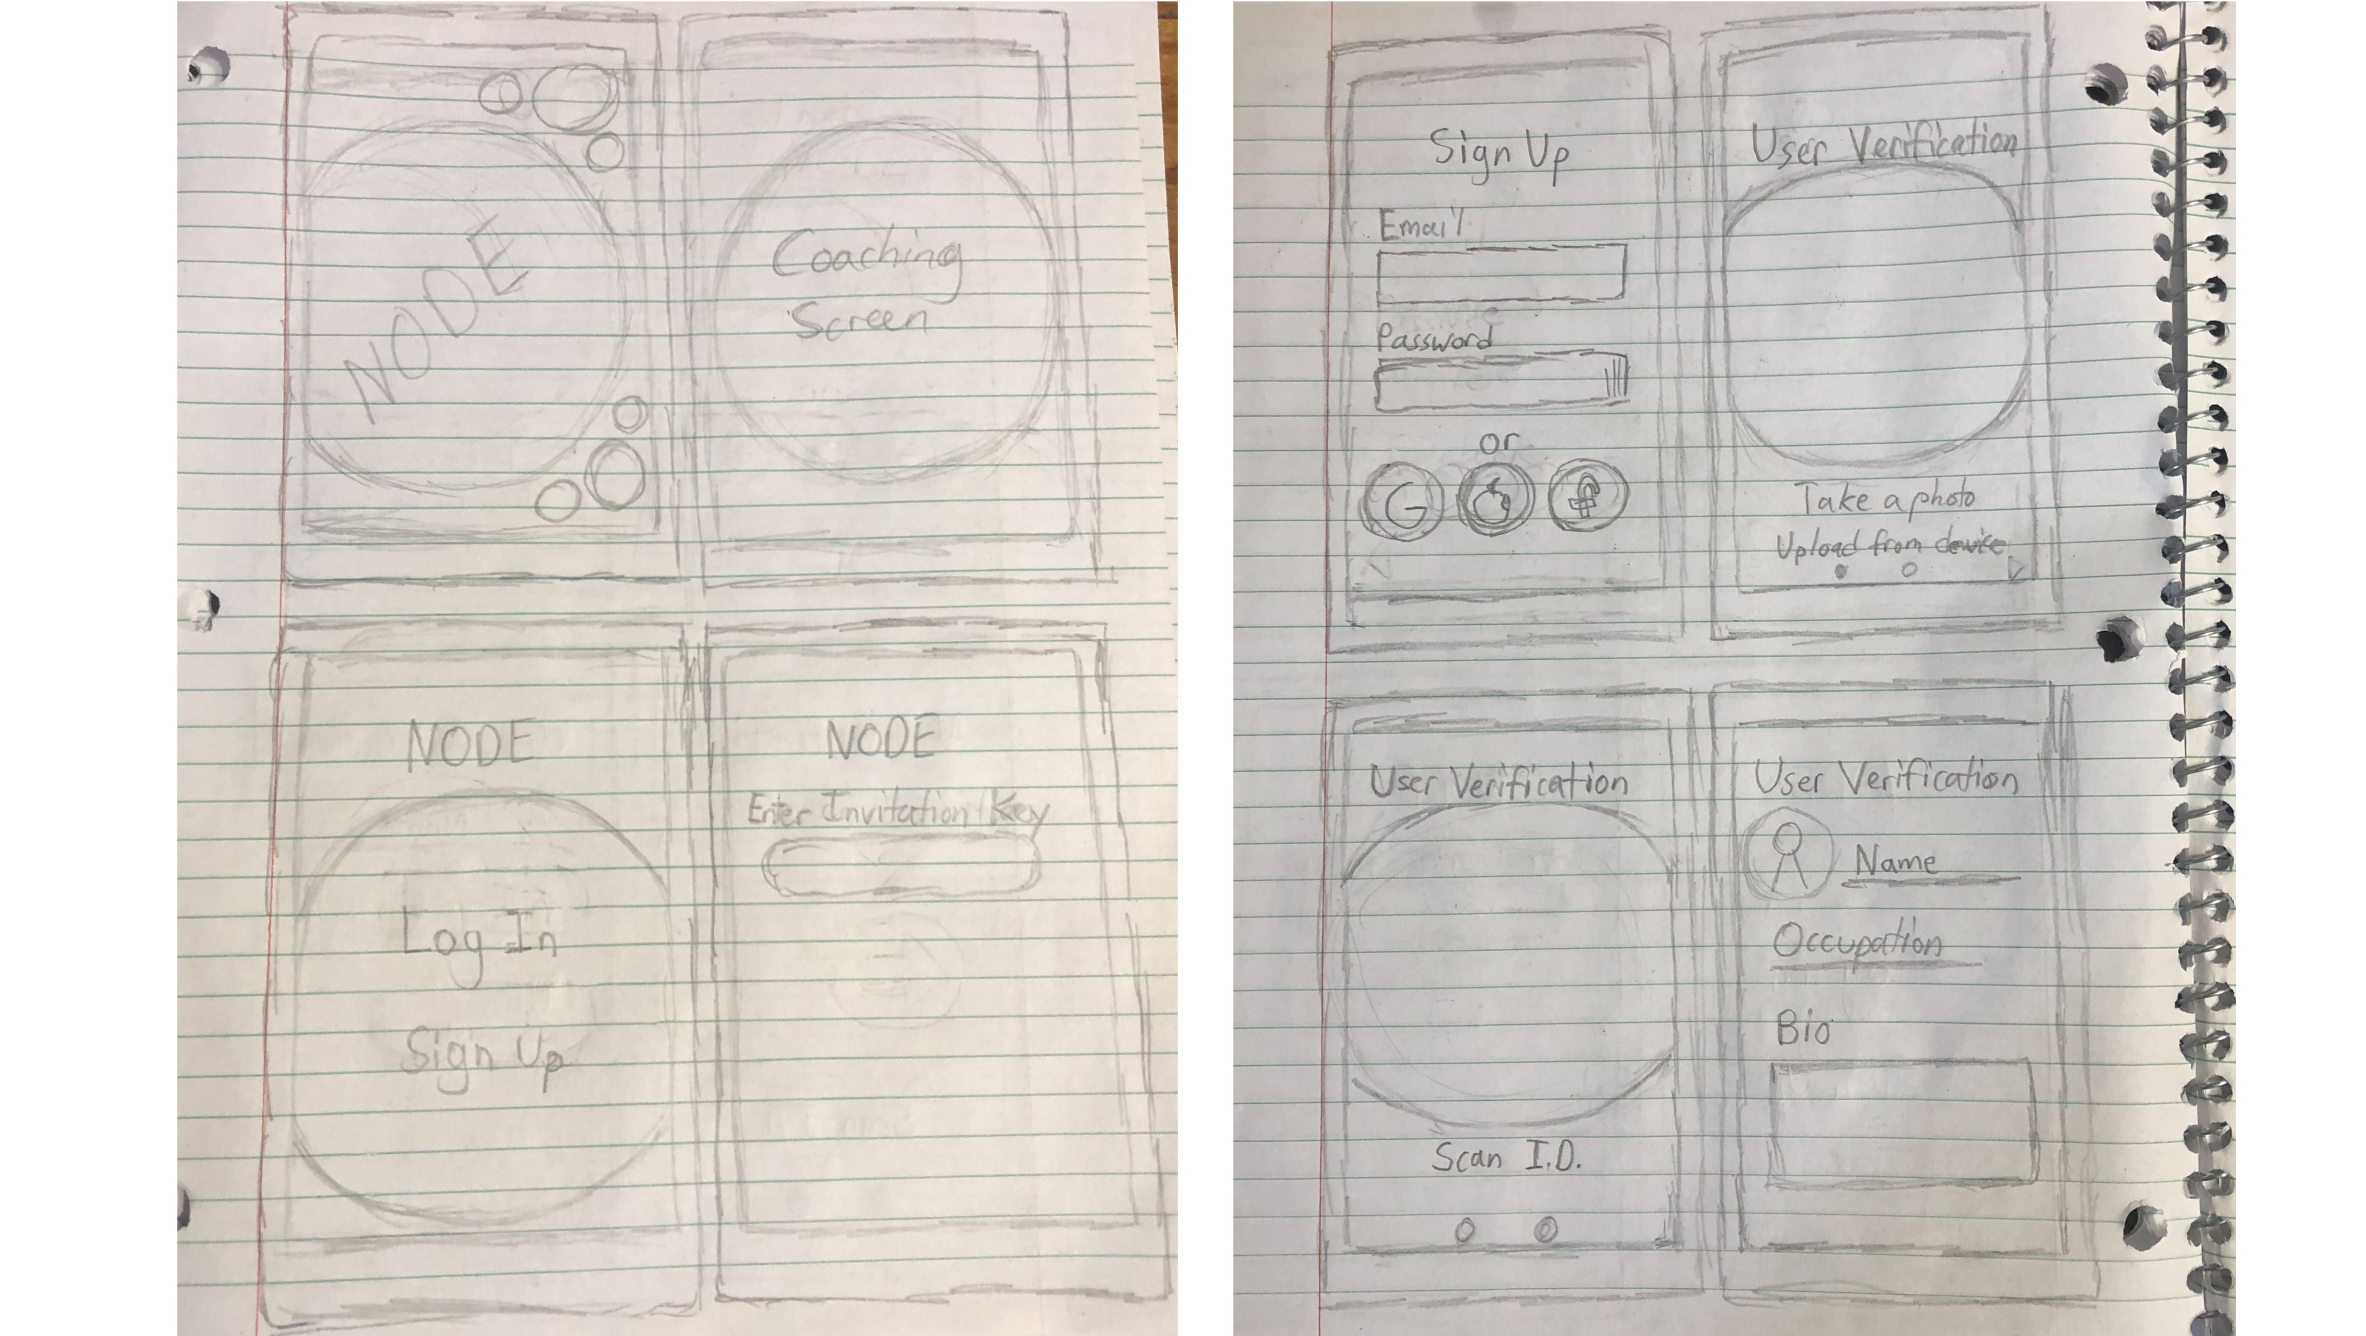 NODE
Coaching
Screen
NODE
Log In
Sign Up
NODE
Enter Invitation Key
Sign Up
Email
Password
or
G
f
User Verification
Take a photo
Upload from device
User Verification
Scan I.D.
User Verification
Name
Occupation
Bio